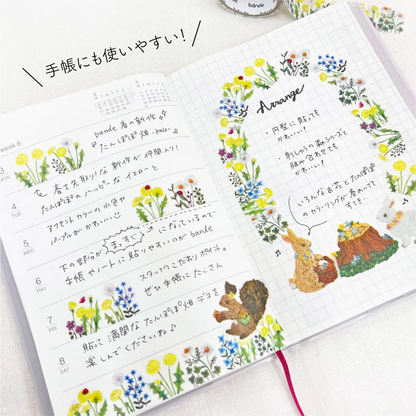 手帳にも使いやすい!
bande
week 8
bande 春の新作
たんぽぽ畑
春を先取りな新作が仲間入り!
たんぽぽのハッピーなイエローと
アクセントカラーの水色や
パープルがかわいい
下の部分がまっすぐになっているので
手帳やノートに貼りやすいのがbande
スタッフのこだわりポイント。
ぜひ手帳にたくさん
貼って満開なたんぽぽ畑デコを
楽しんでくださいね♪
3
MON
4
TUE
5
WED
6
THU
7
FRI
8
SAT
Arrange
・円型に貼っても
かわいい!
・刺しゅうの森シリーズと
組み合わせても
かわいい!
いろんなお花とたんぽぽ
のカラーリングが春めいてて
すてき